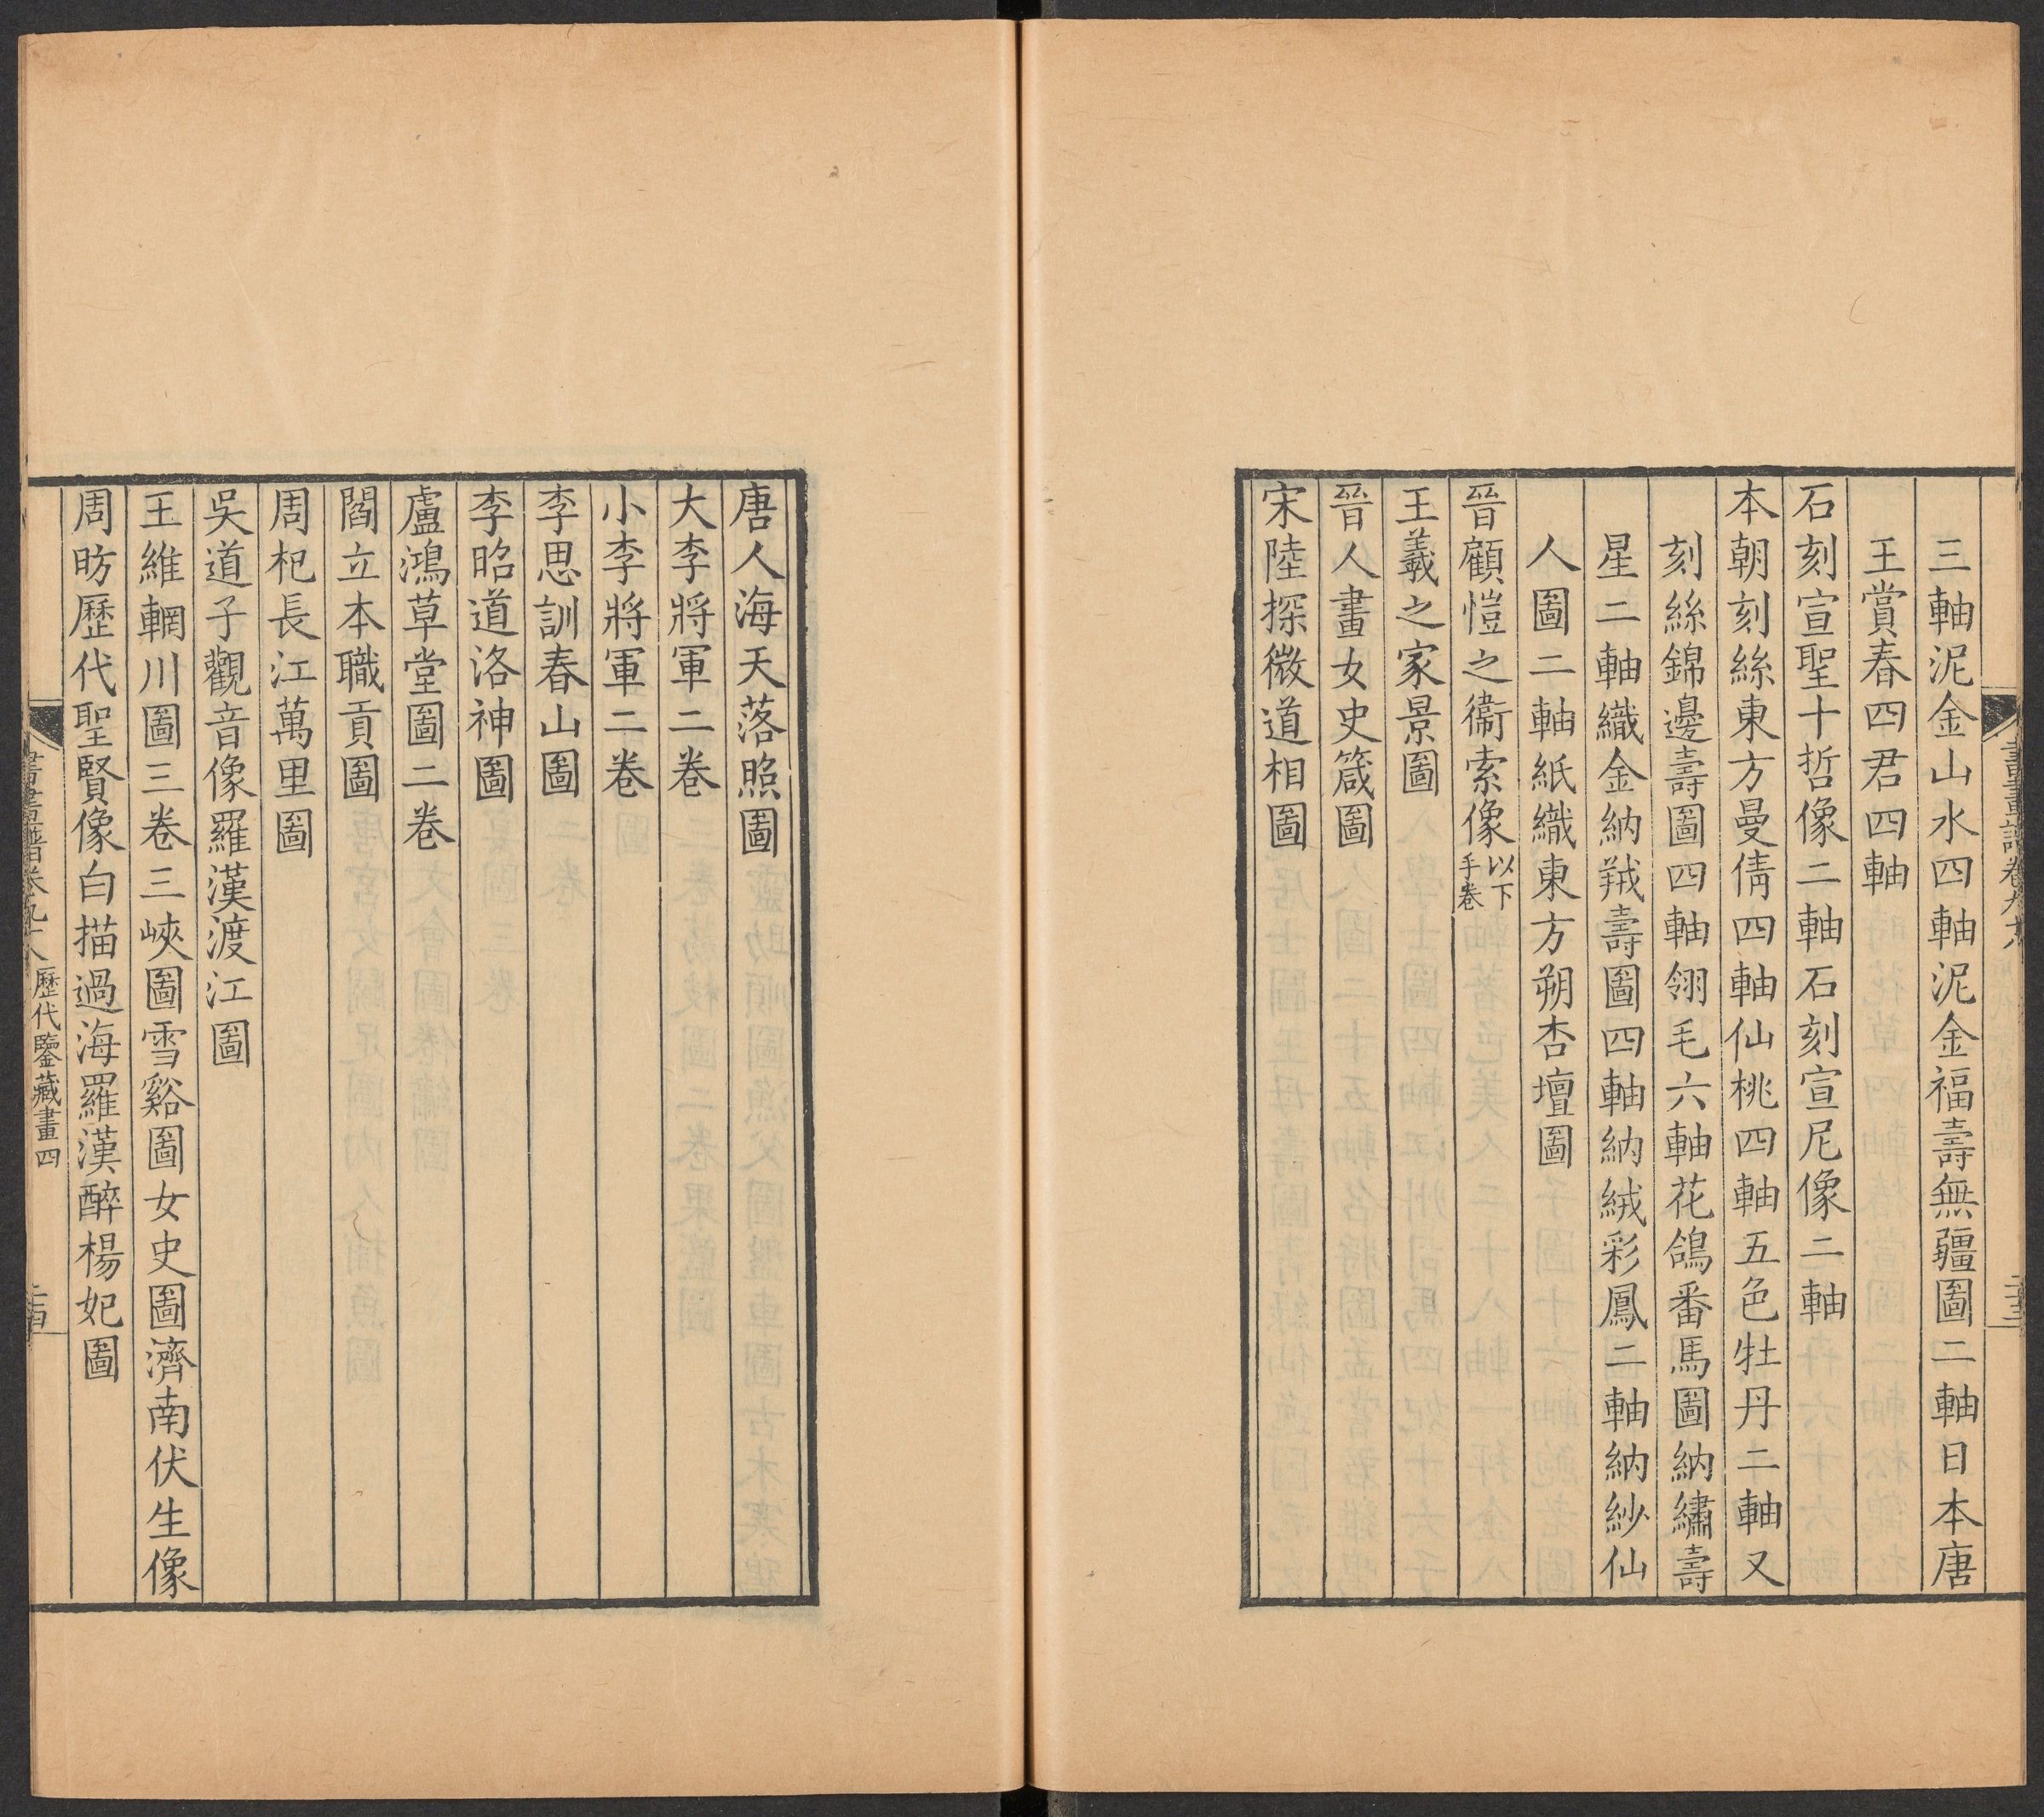 三軸泥金山水四軸泥金福壽無疆圖二軸日本唐
王賞春四君四軸
石刻宣聖十哲像二軸石刻宣尼像二軸
本朝刻絲東方曼倩四軸仙桃四軸五色牡丹二軸又
刻絲錦邊壽圖四軸翎毛六軸花鴿番馬圖納繡壽
星二軸織金納羢壽圖四軸納絨彩鳳二軸納紗仙
人圖二軸紙織東方朔杏壇圖
晉顧愷之衞索像以下手卷
王羲之家景圖
晉人畫女史箴圖
宋陸探微道相圖
唐人海天落照圖
大李將軍二卷
小李將軍二卷
李思訓春山圖
李昭道洛神圖
盧鴻草堂圖二卷
閻立本職貢圖
周杞長江萬里圖
吳道子觀音像羅漢渡江圖
王維輞川圖三卷三峽圖雪谿圖女史圖濟南伏生像
周昉歷代聖賢像白描過海羅漢醉楊妃圖
書畫譜卷九十八 歷代鑒藏畫四